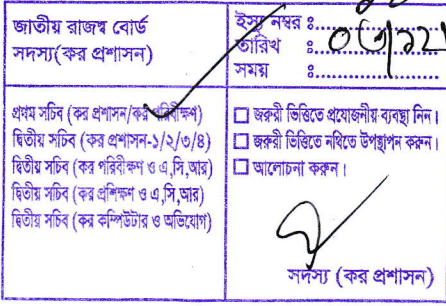 জাতীয় রাজস্ব বোর্ড
সদস্য(কর প্রশাসন)
ইস্যু নম্বর ঃ
তারিখ ঃ
সময় ঃ
প্রথম সচিব (কর প্রশাসন/কর পরিবীক্ষণ)
দ্বিতীয় সচিব (কর প্রশাসন-১/২/৩/৪)
দ্বিতীয় সচিব (কর পরিবীক্ষণ ও এ,সি,আর)
দ্বিতীয় সচিব (কর প্রশিক্ষণ ও এ,সি,আর)
দ্বিতীয় সচিব (কর কম্পিউটার ও অভিযোগ)
জরুরী ভিত্তিতে প্রয়োজনীয় ব্যবস্থা নিন।
জরুরী ভিত্তিতে নথিতে উপস্থাপন করুন।
আলোচনা করুন।
সদস্য (কর প্রশাসন)